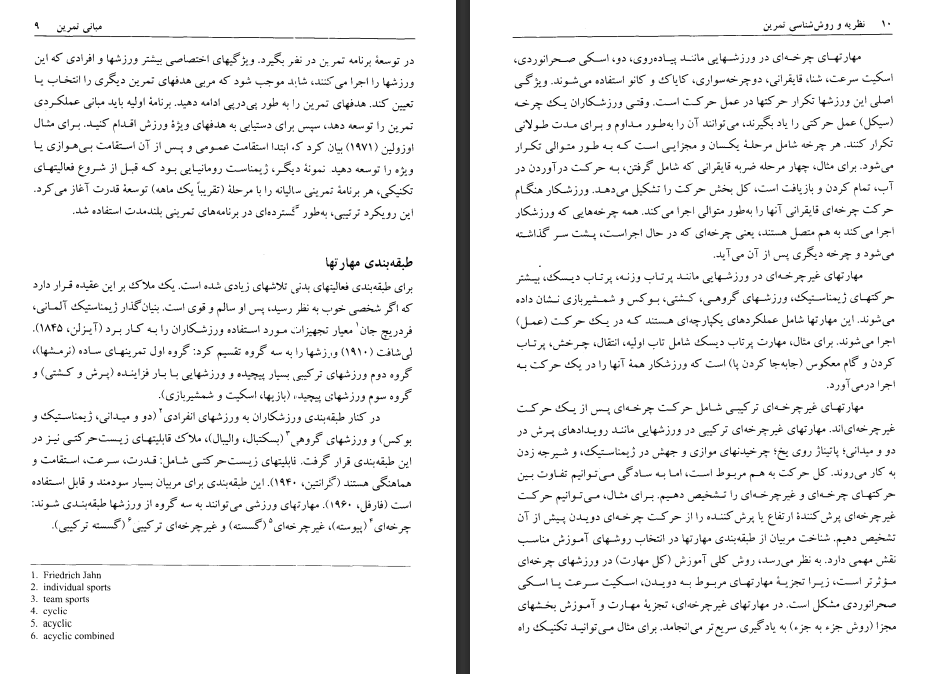 مبانی تمرین ۹
در توسعهٔ برنامه تمرین در نظر بگیرد. ویژگیهای اختصاصی بیشتر ورزشها و افرادی که این
ورزشها را اجرا می‌کنند، شاید موجب شود که مربی هدفهای تمرین دیگری را انتخاب یا
تعیین کند. هدفهای تمرین را به طور پی‌درپی ادامه دهید. برنامهٔ اولیه باید مبانی عملکردی
تمرین را توسعه دهد، سپس برای دستیابی به هدفهای ویژهٔ ورزش اقدام کنید. برای مثال
اوزولین (۱۹۷۱) بیان کرد که ابتدا استقامت عمومی و پس از آن استقامت بی‌هوازی یا
ویژه را توسعه دهید. نمونهٔ دیگر، ژیمناست رومانیایی بود که قبل از شروع فعالیتهای
تکنیکی، هر برنامهٔ تمرینی سالیانه را با مرحلهٔ (تقریباً یک ماهه) توسعهٔ قدرت آغاز می‌کرد.
این رویکرد ترتیبی، به‌طور گسترده‌ای در برنامه‌های تمرینی بلندمدت استفاده شد.
طبقه‌بندی مهارتها
برای طبقه‌بندی فعالیتهای بدنی تلاشهای زیادی شده است. یک ملاک بر این عقیده قرار دارد
که اگر شخصی خوب به نظر رسید، پس او سالم و قوی است. بنیان‌گذار ژیمناستیک آلمانی،
فردریچ جان۱ معیار تجهیزات مورد استفاده ورزشکاران را به کار برد (آیزلن، ۱۸۴۵).
لی‌شافت (۱۹۱۰) ورزشها را به سه گروه تقسیم کرد: گروه اول تمرینهای ساده (نرمشها)،
گروه دوم ورزشهای ترکیبی بسیار پیچیده و ورزشهایی با بار فزاینده (پرش و کشتی) و
گروه سوم ورزشهای پیچیده (بازیها، اسکیت و شمشیربازی).
در کنار طبقه‌بندی ورزشکاران به ورزشهای انفرادی۲ (دو و میدانی، ژیمناستیک و
بوکس) و ورزشهای گروهی۳ (بسکتبال، والیبال)، ملاک قابلیتهای زیست‌حرکتی نیز در
این طبقه‌بندی قرار گرفت. قابلیتهای زیست‌حرکتی شامل: قدرت، سرعت، استقامت و
هماهنگی هستند (گرانتین، ۱۹۴۰). این طبقه‌بندی برای مربیان بسیار سودمند و قابل استفاده
است (فارفل، ۱۹۶۰). مهارتهای ورزشی می‌توانند به سه گروه از ورزشها طبقه‌بندی شوند:
چرخه‌ای۴ (پیوسته)، غیرچرخه‌ای۵ (گسسته) و غیرچرخه‌ای ترکیبی۶ (گسسته ترکیبی).
1. Friedrich Jahn
2. individual sports
3. team sports
4. cyclic
5. acyclic
6. acyclic combined
۱۰ نظریه و روش‌شناسی تمرین
مهارتهای چرخه‌ای در ورزشهایی مانند پیاده‌روی، دو، اسکی صحرانوردی،
اسکیت سرعت، شنا، قایقرانی، دوچرخه‌سواری، کایاک و کانو استفاده می‌شوند. ویژگی
اصلی این ورزشها تکرار حرکتها در عمل حرکت است. وقتی ورزشکاران یک چرخه
(سیکل) عمل حرکتی را یاد بگیرند، می‌توانند آن را به‌طور مداوم و برای مدت طولانی
تکرار کنند. هر چرخه شامل مرحلهٔ یکسان و مجزایی است که به طور متوالی تکرار
می‌شود. برای مثال، چهار مرحله ضربه قایقرانی که شامل گرفتن، به حرکت درآوردن در
آب، تمام کردن و بازیافت است، کل بخش حرکت را تشکیل می‌دهد. ورزشکار هنگام
حرکت چرخه‌ای قایقرانی آنها را به‌طور متوالی اجرا می‌کند. همه چرخه‌هایی که ورزشکار
اجرا می‌کند به هم متصل هستند، یعنی چرخه‌ای که در حال اجراست، پشت سر گذاشته
می‌شود و چرخه دیگری پس از آن می‌آید.
مهارتهای غیرچرخه‌ای در ورزشهایی مانند پرتاب وزنه، پرتاب دیسک، بیشتر
حرکتهای ژیمناستیک، ورزشهای گروهی، کشتی، بوکس و شمشیربازی نشان داده
می‌شوند. این مهارتها شامل عملکردهای یکپارچه‌ای هستند که در یک حرکت (عمل)
اجرا می‌شوند. برای مثال، مهارت پرتاب دیسک شامل تاب اولیه، انتقال، چرخش، پرتاب
کردن و گام معکوس (جابه‌جا کردن پا) است که ورزشکار همهٔ آنها را در یک حرکت به
اجرا درمی‌آورد.
مهارتهای غیرچرخه‌ای ترکیبی شامل حرکت چرخه‌ای پس از یک حرکت
غیرچرخه‌ای‌اند. مهارتهای غیرچرخه‌ای ترکیبی در ورزشهایی مانند رویدادهای پرش در
دو و میدانی؛ پاتیناژ روی یخ؛ چرخیدنهای موازی و جهش در ژیمناستیک، و شیرجه زدن
به کار می‌روند. کل حرکت به هم مربوط است، اما به سادگی می‌توانیم تفاوت بین
حرکتهای چرخه‌ای و غیرچرخه‌ای را تشخیص دهیم. برای مثال، می‌توانیم حرکت
غیرچرخه‌ای پرش‌کنندهٔ ارتفاع یا پرش‌کننده را از حرکت چرخه‌ای دویدن پیش از آن
تشخیص دهیم. شناخت مربیان از طبقه‌بندی مهارتها در انتخاب روشهای آموزش مناسب
نقش مهمی دارد. به نظر می‌رسد، روش کلی آموزش (کل مهارت) در ورزشهای چرخه‌ای
مؤثرتر است، زیرا تجزیهٔ مهارتهای مربوط به دویدن، اسکیت سرعت یا اسکی
صحرانوردی مشکل است. در مهارتهای غیرچرخه‌ای، تجزیهٔ مهارت و آموزش بخشهای
مجزا (روش جزء به جزء) به یادگیری سریع‌تر می‌انجامد. برای مثال می‌توانید تکنیک راه